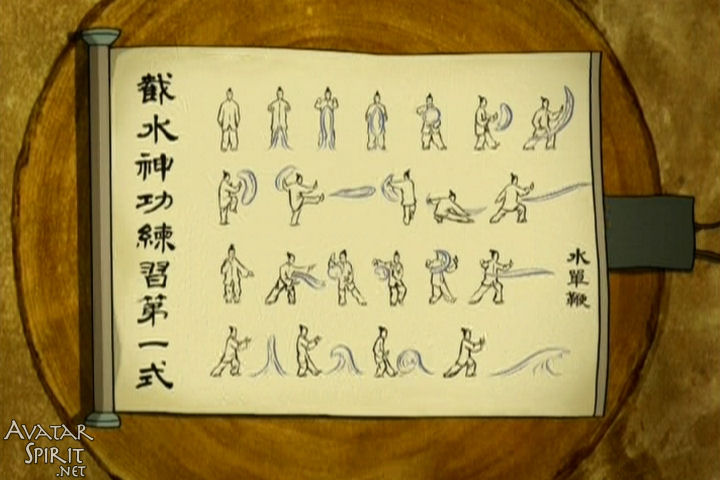 截水神功練習第一式
水單鞭
AVATAR
SPIRIT
.NET